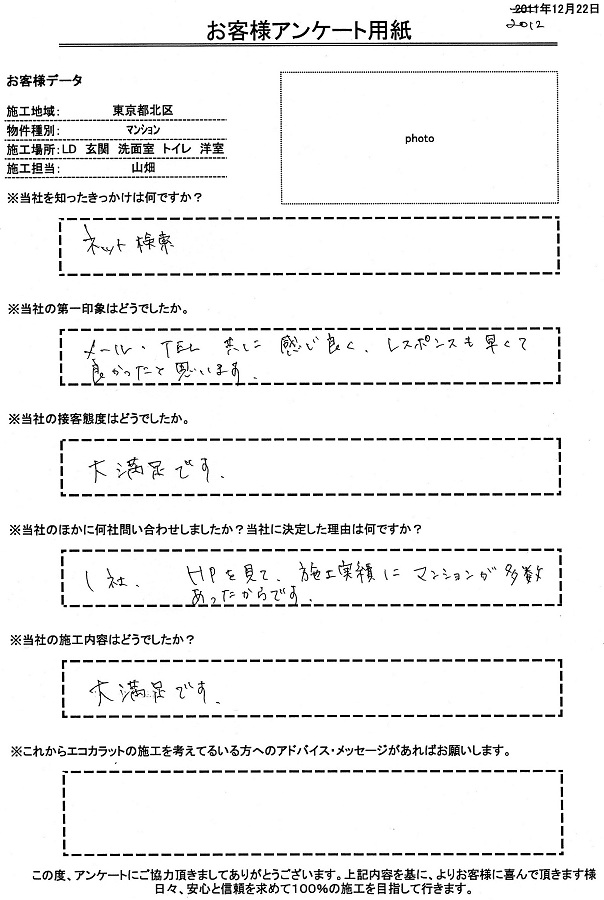 2011年12月22日
2012
お客様アンケート用紙
お客様データ
施工地域: 東京都北区
物件種別: マンション
施工場所: LD 玄関 洗面室 トイレ 洋室
施工担当: 山畑
photo
※当社を知ったきっかけは何ですか？
ネット検索
※当社の第一印象はどうでしたか。
メール・TEL 共に感じ良く、レスポンスも早くて
良かったと思います。
※当社の接客態度はどうでしたか。
大満足です。
※当社のほかに何社問い合わせしましたか？当社に決定した理由は何ですか？
1社、 HPを見て、施工実積にマンションが多数
あったからです。
※当社の施工内容はどうでしたか？
大満足です。
※これからエコカラットの施工を考えてるいる方へのアドバイス・メッセージがあればお願いします。
この度、アンケートにご協力頂きましてありがとうございます。上記内容を基に、よりお客様に喜んで頂きます様
日々、安心と信頼を求めて100%の施工を目指して行きます。